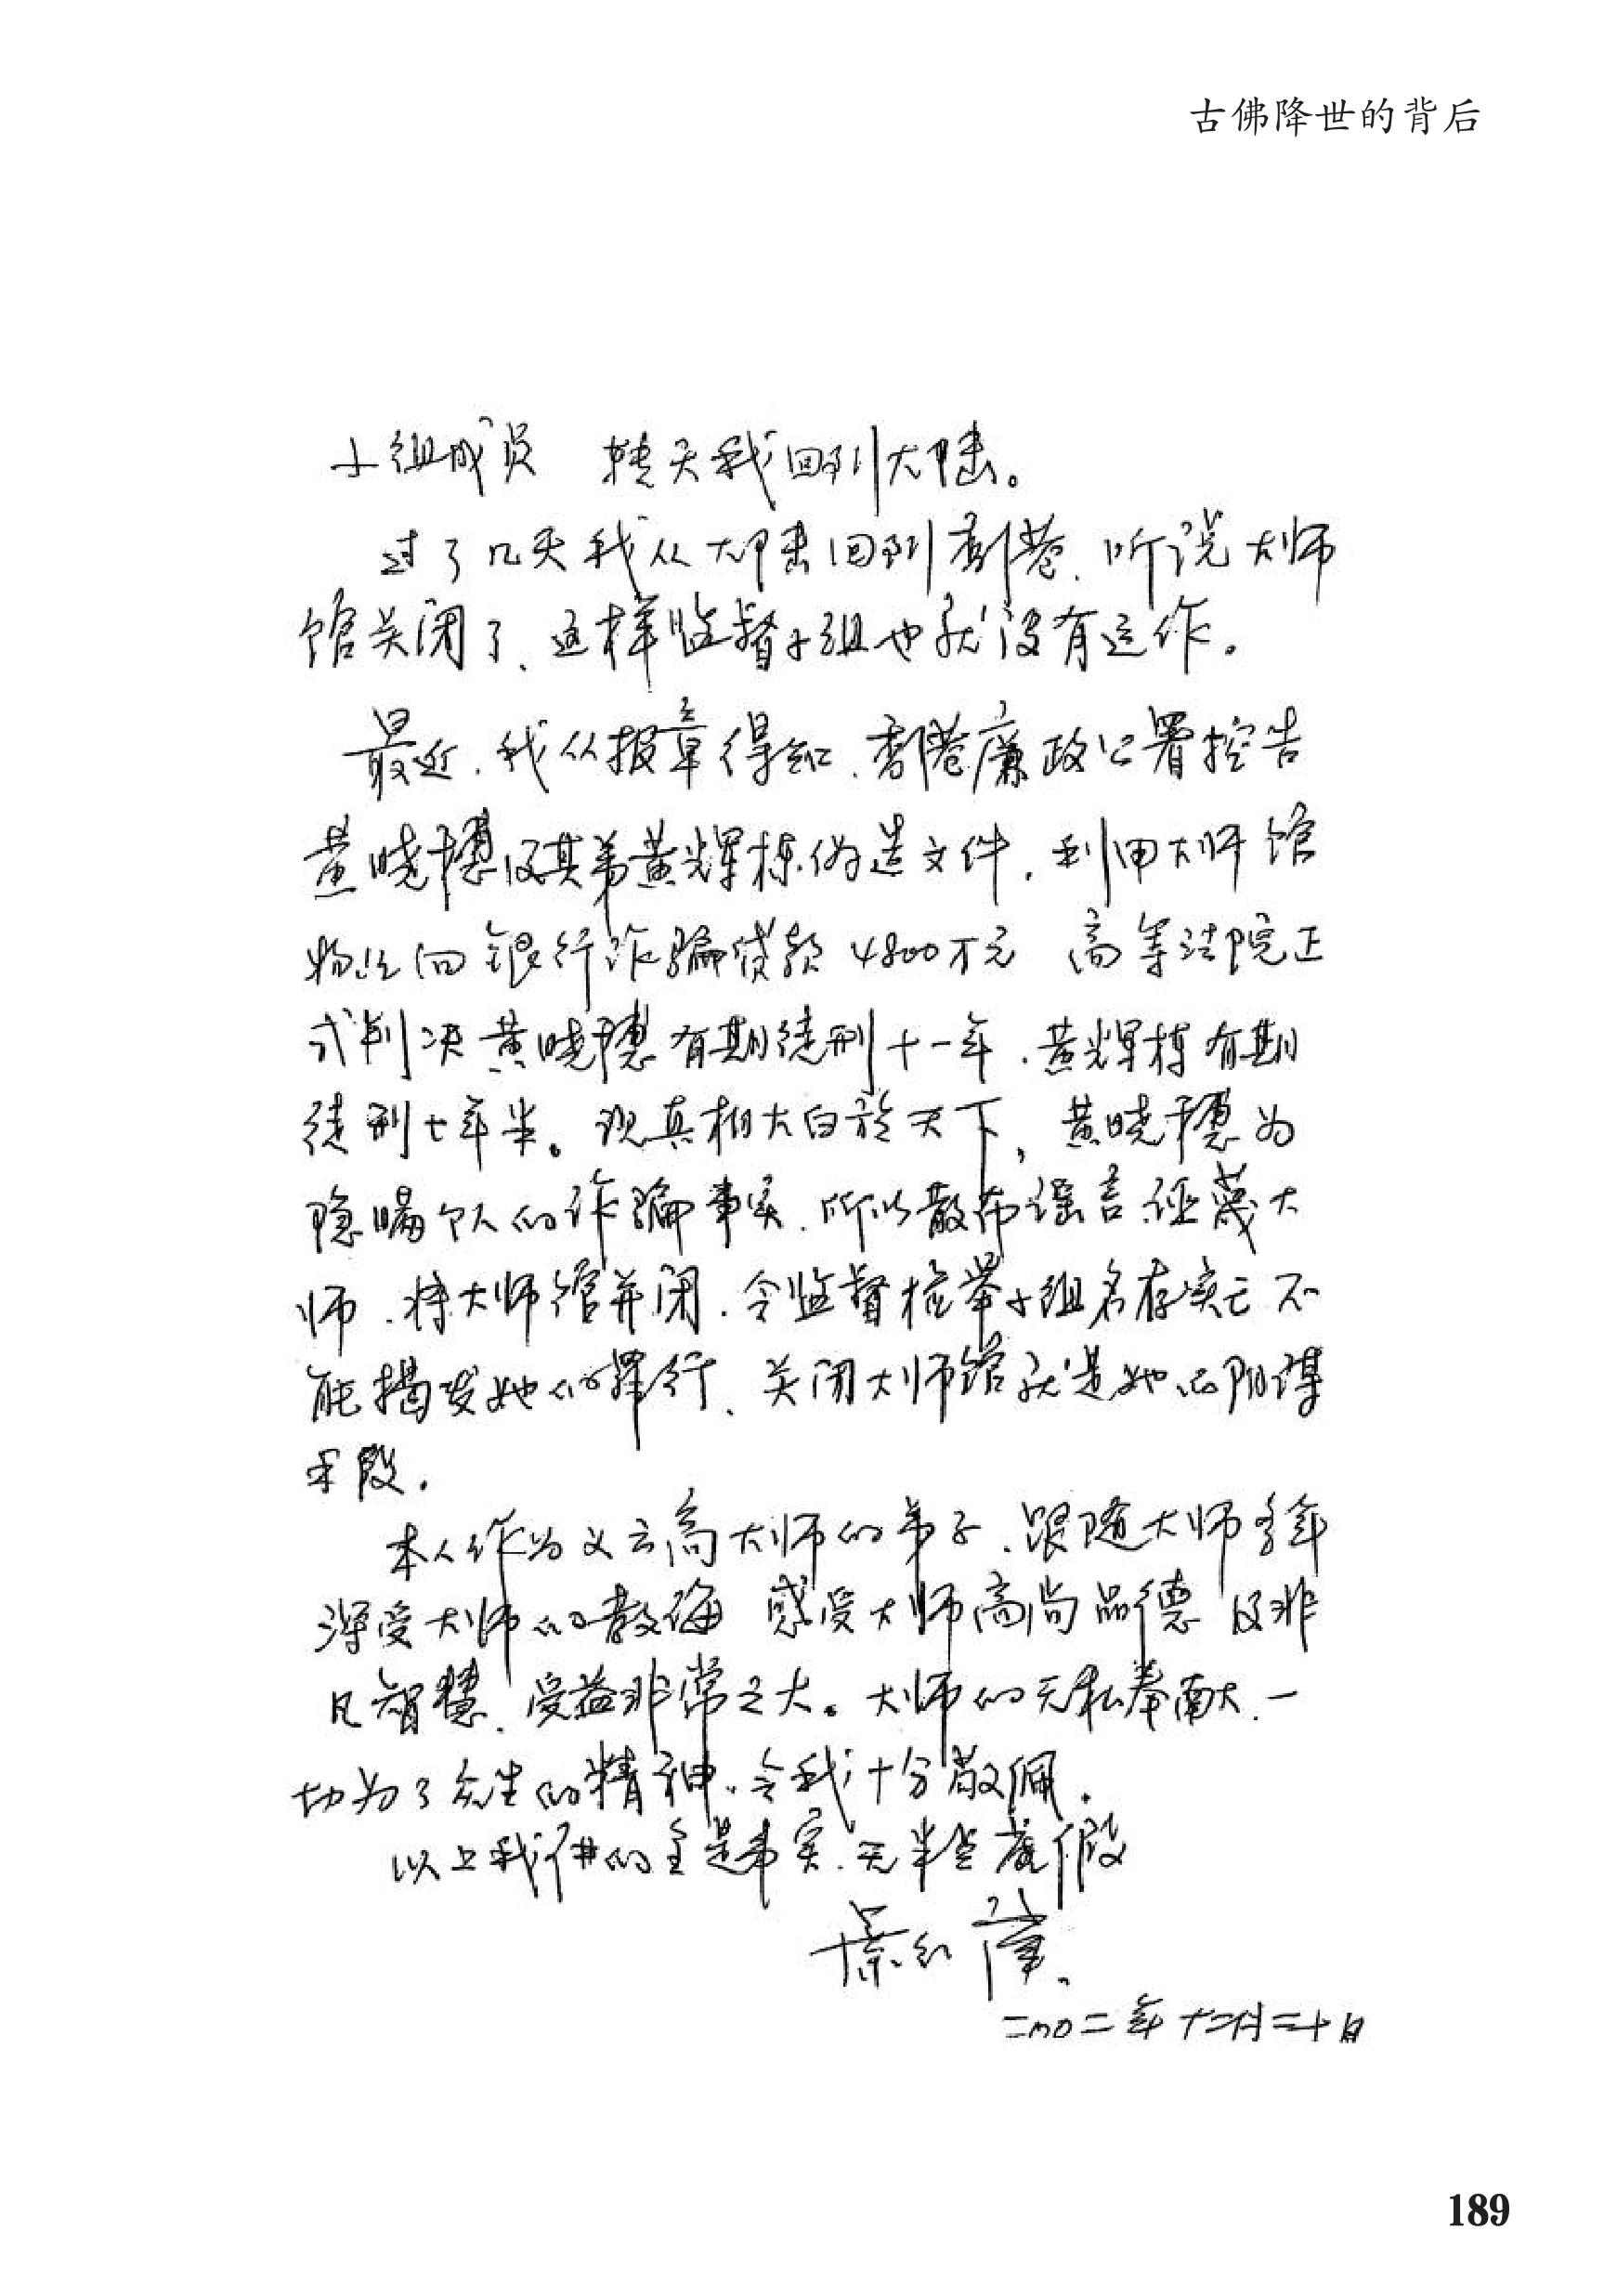 古佛降世的背后
小组成员 转天我回到大陆。
过了几天我从大陆回到香港、听说大师
馆关闭了、这样监督小组也就没有运作。
最近、我从报章得知、香港廉政公署控告
黄晓穗及其弟黄辉栋伪造文件、利用大师馆
物业向银行诈骗贷款4800万元 高等法院正
式判决黄晓穗有期徒刑十一年、黄辉栋有期
徒刑七年半。现真相大白於天下，黄晓穗为
隐瞒个人的诈骗事实、所以散布谣言诬蔑大
师、将大师馆关闭、令监督检举小组名存实亡不
能揭发她的罪行、关闭大师馆就是她的阴谋
手段.
本人作为义云高大师的弟子、跟随大师多年
深受大师的教诲 感受大师高尚品德及非
凡智慧、受益非常之大。大师的无私奉献、一
切为了众生的精神、令我十分敬佩.
以上我讲的全是事实、无半点虚假
二〇〇二年十二月三十日
189